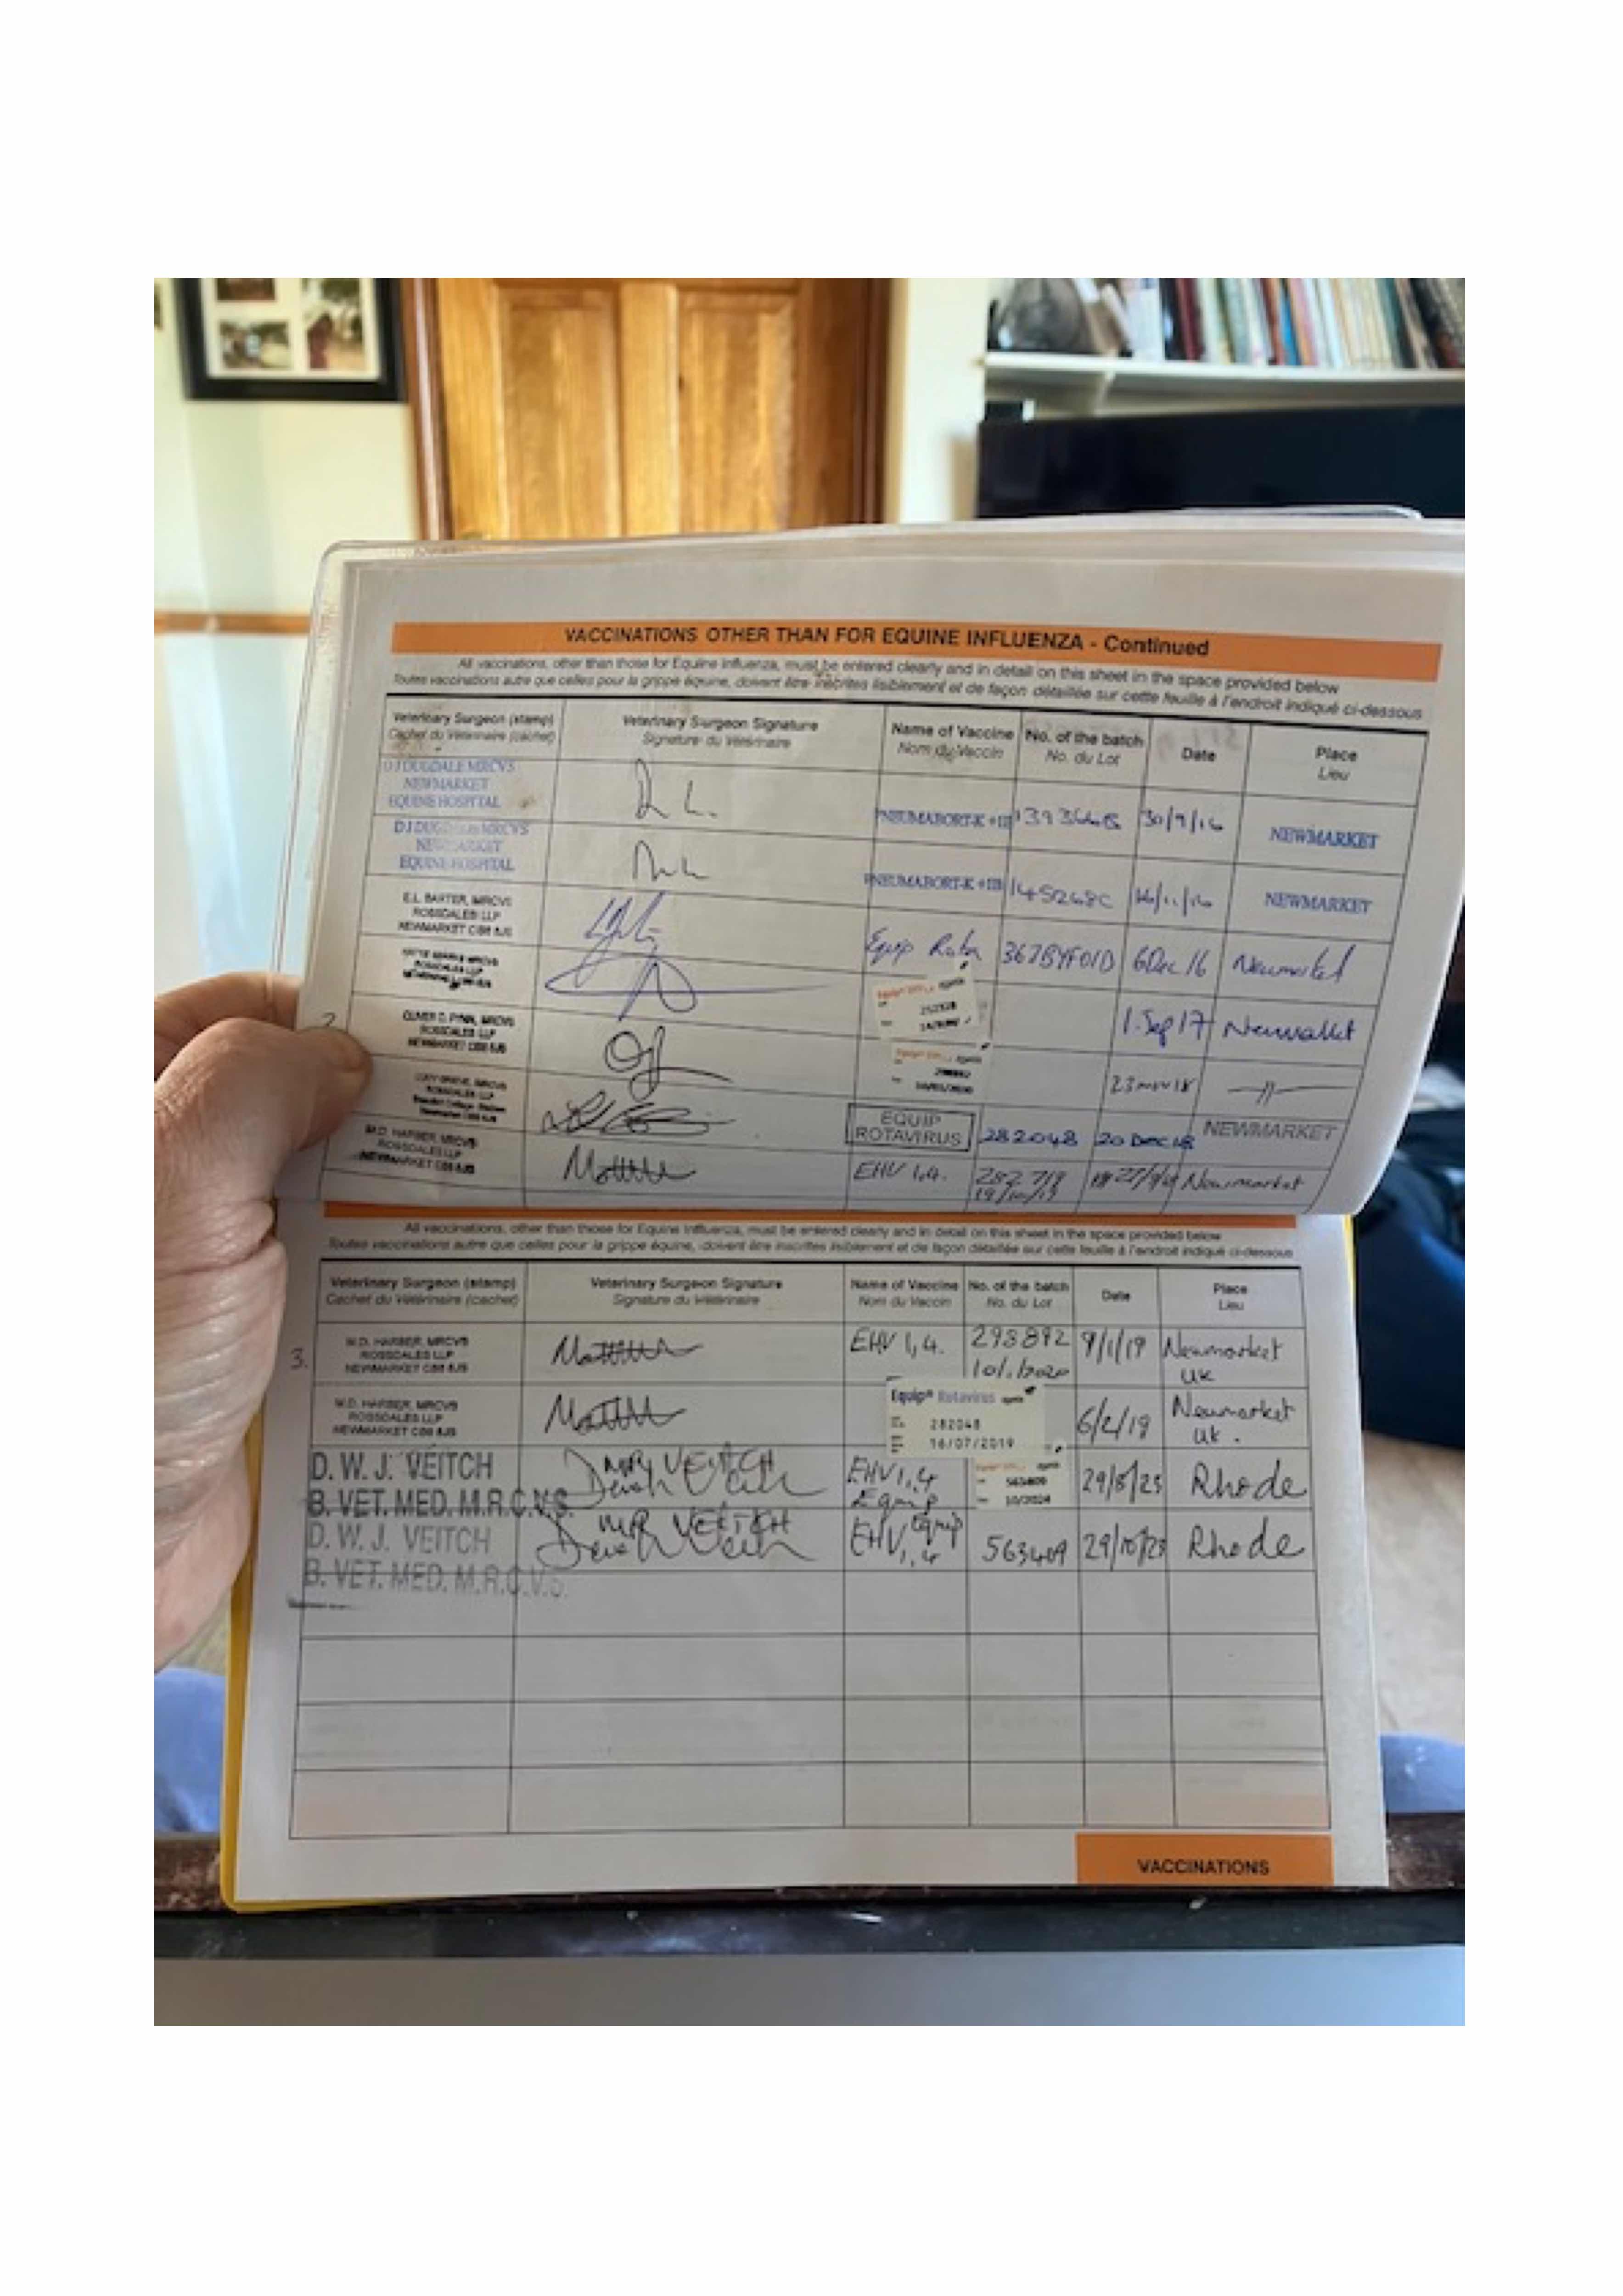 VACCINATIONS OTHER THAN FOR EQUINE INFLUENZA - Continued
All vaccinations, other than those for Equine Influenza, must be entered clearly and in detail on this sheet in the space provided below
Toutes vaccinations autre que celles pour la grippe équine, doivent être inscrites lisiblement et de façon détaillée sur cette feuille à l'endroit indiqué ci-dessous
Veterinary Surgeon (stamp) Veterinary Surgeon Signature Name of Vaccine No. of the batch Date Place
Cachet du Vétérinaire (cachet) Signature du Vétérinaire Nom du Vaccin No. du Lot Lieu
D J DUGDALE MRCVS
NEWMARKET
EQUINE HOSPITAL
PNEUMABORT-K +IB 30/9/16 NEWMARKET
D J DUGDALE MRCVS
NEWMARKET
EQUINE HOSPITAL
PNEUMABORT-K +IB 145268C NEWMARKET
E.L. BARTER, MRCVS
ROSSDALES LLP
NEWMARKET CB8 8JS
Equip Rota 367BYF01D 6 Dec 16 Newmarket
ROSSDALES LLP
1. Sep 17 Newmarket
2
OLIVER D. PYNN, MRCVS
ROSSDALES LLP
NEWMARKET CB8 8JS
23 nov 18 —11—
ROSSDALES LLP
EQUIP
ROTAVIRUS 282048 20 Dec 18 NEWMARKET
M.D. HARBER, MRCVS
ROSSDALES LLP
NEWMARKET CB8 8JS
EHV 1,4. Newmarket
All vaccinations, other than those for Equine Influenza, must be entered clearly and in detail on this sheet in the space provided below
Toutes vaccinations autre que celles pour la grippe équine, doivent être inscrites lisiblement et de façon détaillée sur cette feuille à l'endroit indiqué ci-dessous
Veterinary Surgeon (stamp) Veterinary Surgeon Signature Name of Vaccine No. of the batch Date Place
Cachet du Vétérinaire (cachet) Signature du Vétérinaire Nom du Vaccin No. du Lot Lieu
3.
M.D. HARBER, MRCVS
ROSSDALES LLP
NEWMARKET CB8 8JS
EHV 1,4. 298892 9/1/19 Newmarket
10/1/2020 UK
M.D. HARBER, MRCVS
ROSSDALES LLP
NEWMARKET CB8 8JS
Equip® Rotavirus
282048
16/07/2019
6/2/19 Newmarket
UK.
D. W. J. VEITCH
B. VET. MED. M.R.C.V.S.
MR VEITCH
EHV 1,4
Equip
10/2024
Rhode
D. W. J. VEITCH
B. VET. MED. M.R.C.V.S.
MR VEITCH
EHV Equip
1,4
563409 29/10/23 Rhode
VACCINATIONS